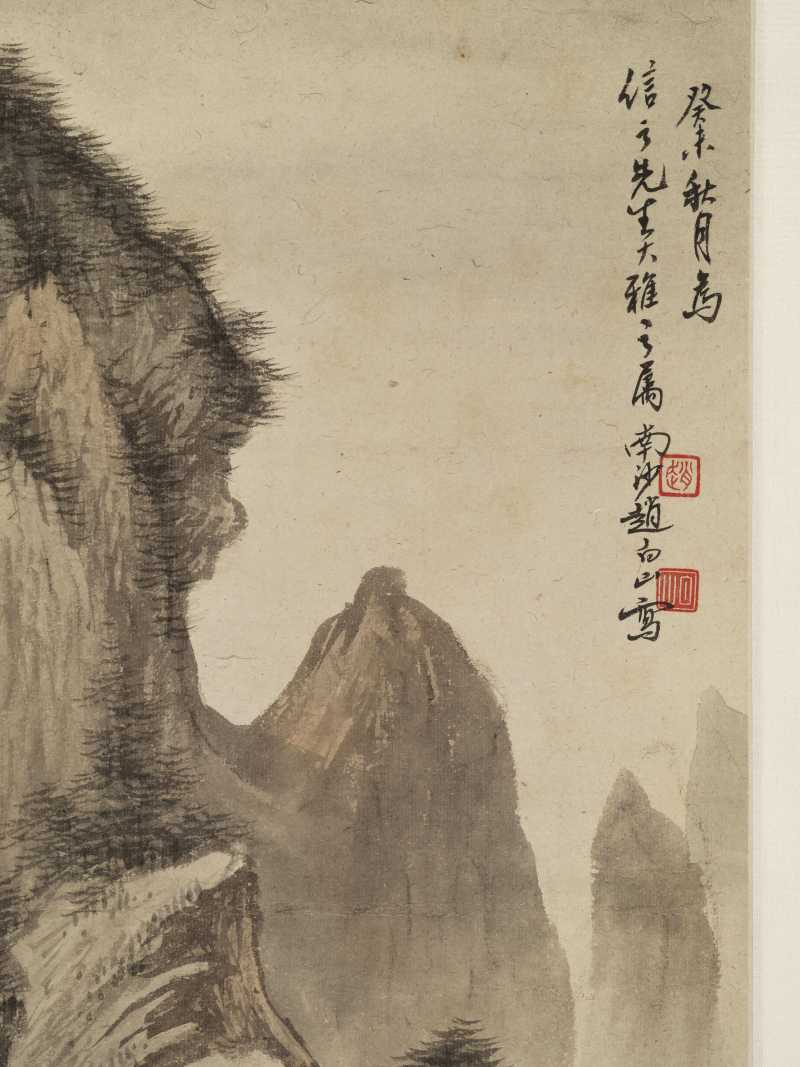 癸未秋月為
信之先生大雅之属南沙趙白山寫
趙
白山